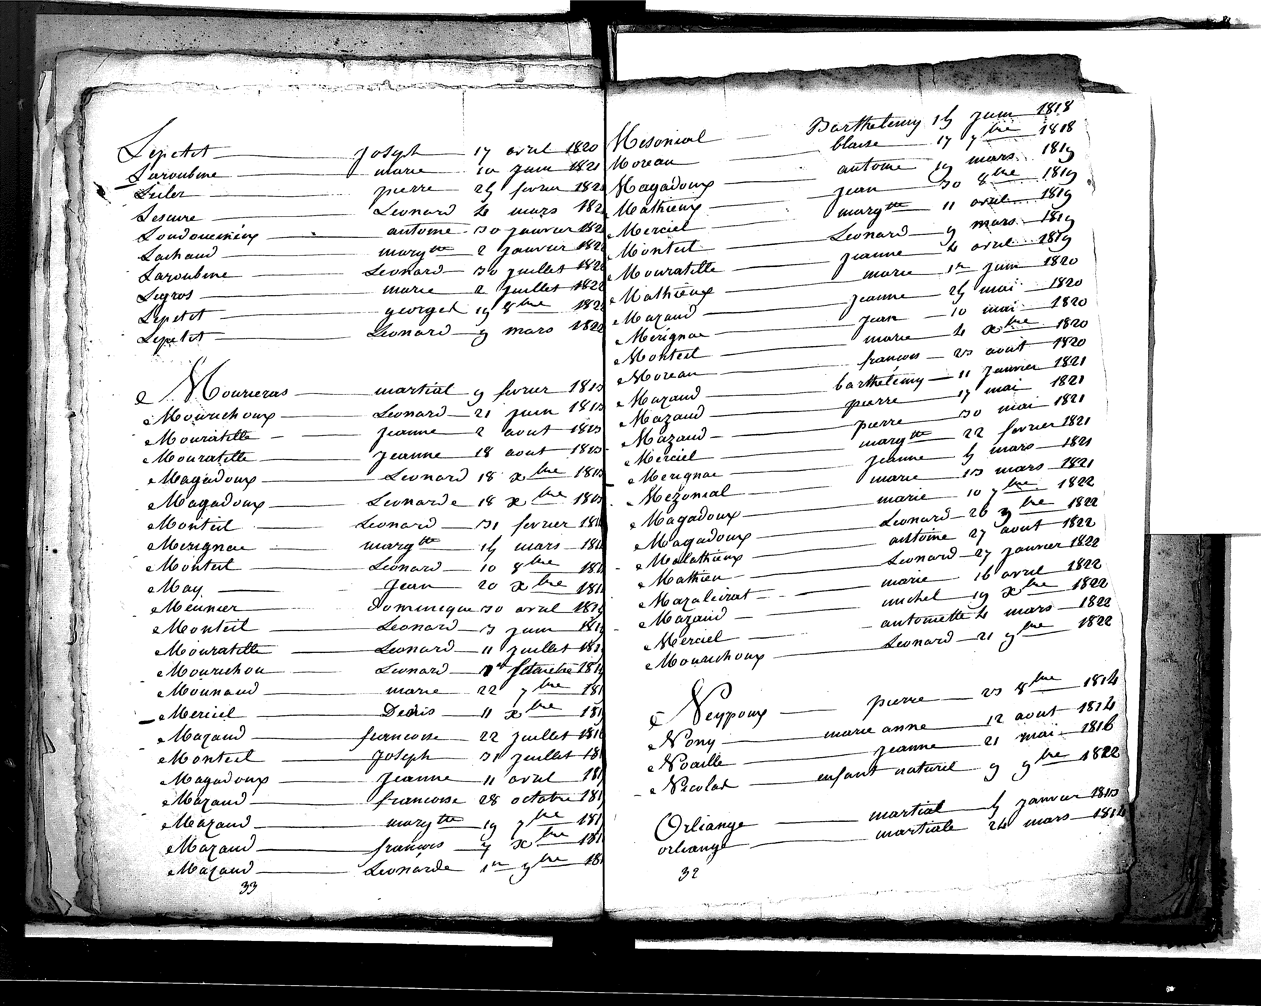 Lepetit joseph 17 avril 1820
Laroubine marie 10 juin 1821
Leiler pierre 25 fevrier 182
Lesure Leonard 4 mars 182
Loudoueineix antoine 30 janvier 182
Lachaud margtte 2 janvier 182
Laroubine Leonard 30 juillet 182
Legros marie 2 juillet 1822
Lepetit george 19 8bre 182
Lepetit Leonard 9 mars 1822
Mourieras martial 9 fevrier 1813
Mourichoux Leonard 21 juin 1813
Mouratille jeanne 2 aout 1813
Mouratille jeanne 18 aout 1813
Magadoux Leonard 18 xbre 1813
Magadoux Leonarde 18 xbre 1813
Monteil Leonard 31 fevrier 181
Merignac margtte 15 mars 181
Monteil Leonard 10 8bre 181
May jean 20 xbre 181
Meunier dominique 30 avril 181
Monteil Leonard 3 juin 181
Mouratille Leonard 11 juillet 181
Mourichou Leonard 181
Mounaud marie 22 7bre 181
Merciel Denis 11 xbre 181
Mazaud francoise 22 juillet 181
Monteil joseph 31 juillet 181
Magadoux jeanne 11 avril 181
Mazaud francoise 28 octobre 181
Mazaud margtte 19 7bre 181
Mazaud francois 7 xbre 181
Mazaud Leonarde 1er 9bre 181
33
Mesonial Barthelemy 15 juin 1818
Moreau blaise 17 7bre 1818
Magadoux antoine 19 mars 1819
Mathieux jean 30 8bre 1819
Merciel margtte 11 avril 1819
Monteil Leonard 9 mars 1819
Mouratille jeanne 4 avril 1819
Mathieux marie 1er juin 1820
Mazaud jeanne 25 mai 1820
Merignac jean 10 mai 1820
Monteil marie 4 xbre 1820
Moreau francois 23 aout 1820
Mazaud barthélemy 11 janvier 1821
Mazaud pierre 17 mai 1821
Mazaud pierre 30 mai 1821
Merciel margtte 22 fevrier 1821
Merignac jeanne 5 mars 1821
Mezonial marie 13 mars 1821
Magadoux marie 10 7bre 1822
Magadoux Leonard 26 9bre 1822
Malathieux antoine 27 aout 1822
Mathieu Leonard 27 janvier 1822
Mazaleirat marie 16 avril 1822
Mazaud michel 19 xbre 1822
Merciel antoinette 4 mars 1822
Mourichoux Leonard 21 9bre 1822
Neypoux pierre 23 8bre 1814
Nony marie anne 12 aout 1814
Noaille jeanne 21 mai 1816
Nicolas enfant naturel 9 9bre 1822
Orliange martial 5 janvier 1813
orliange martiale 24 mars 1814
32